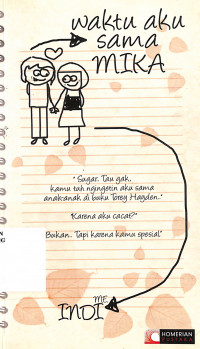 waktu aku
sama
MIKA
"Sugar. Tau gak,
kamu tuh ngingetin aku sama
anak-anak di buku Torey Hayden.."
"Karena aku cacat?"
"Bukan.. Tapi karena kamu spesial"
ME
INDI
HOMERIAN
PUSTAKA